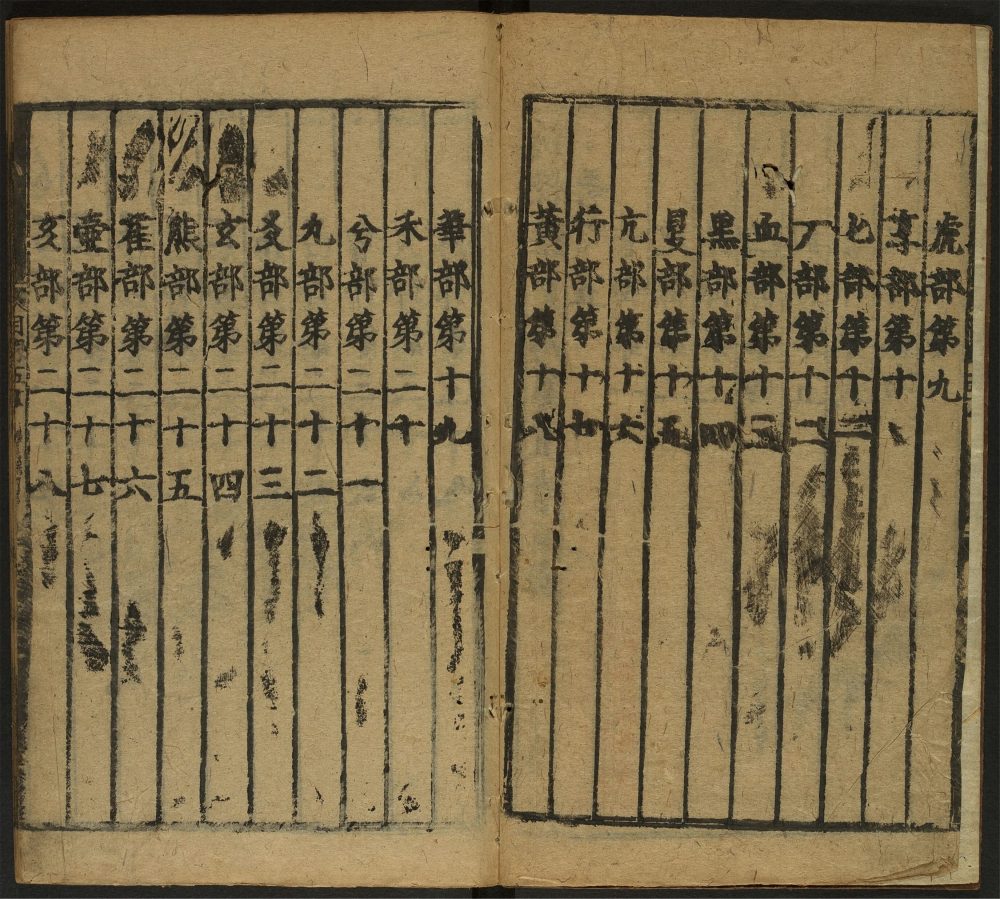 虎部第九
部第十
部第十一
部第十二
血部第十三
黑部第十四
部第十五
亢部第十六
行部第十七
黃部第十八
華部第十九
禾部第二十
兮部第二十一
丸部第二十二
爻部第二十三
玄部第二十四
熊部第二十五
雈部第二十六
壺部第二十七
亥部第二十八